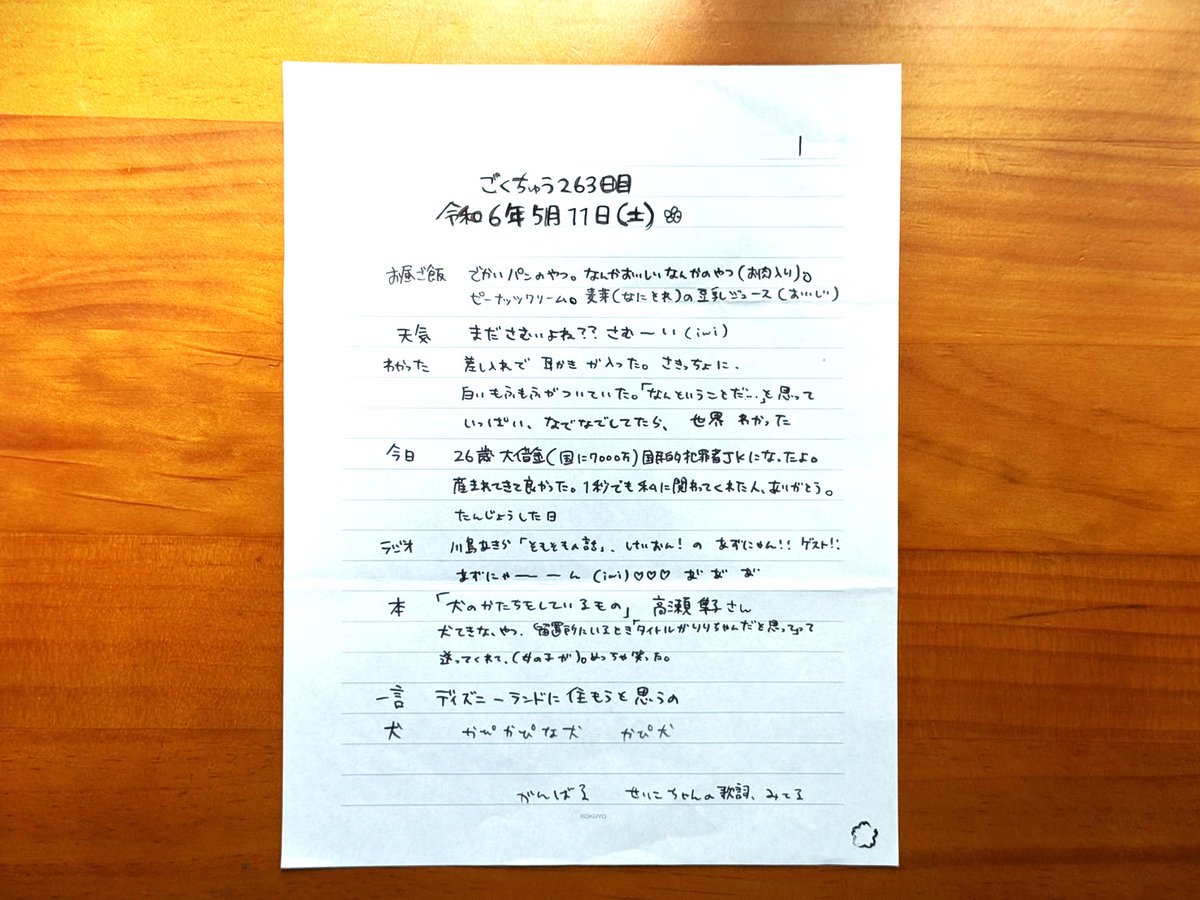 1
ごくちゅう263日目
令和6年5月11日(土)
お昼ご飯 でかいパンのやつ。なんかおいしいなんかのやつ(お肉入り)。
ピーナッツクリーム。麦芽(なにそれ)の豆乳ジュース(おいしい)
天気 まださむいよね??さむーい(iwi)
わかった 差し入れで 耳かき が入った。さきっちょに、
白いもふもふがついていた。「なんということだ…」と思って
いっぱい、なでなでしてたら、 世界 わかった
今日 26歳 大借金(国に7000万)国民的犯罪者JKになったよ。
産まれてきて良かった。1秒でも私に関わってくれた人、ありがとう。
たんじょうした日
ラジオ 川島あきら「ともともの話」、けいおん!の あずにゃん!!ゲスト!!
あずにゃーーん(iwi)♡♡♡ あ゛あ゛あ゛
本 「犬のかたちをしているもの」 高瀬隼子さん
犬てきな、やつ。留置所にいるとき「タイトルがりりちゃんだと思って」って
送ってくれて、(女の子が)。めっちゃ笑った。
一言 ディズニーランドに住もうと思うの
犬 かぴかぴな犬 かぴ犬
がんばる せいこちゃんの歌詞、みてる
KOKUYO